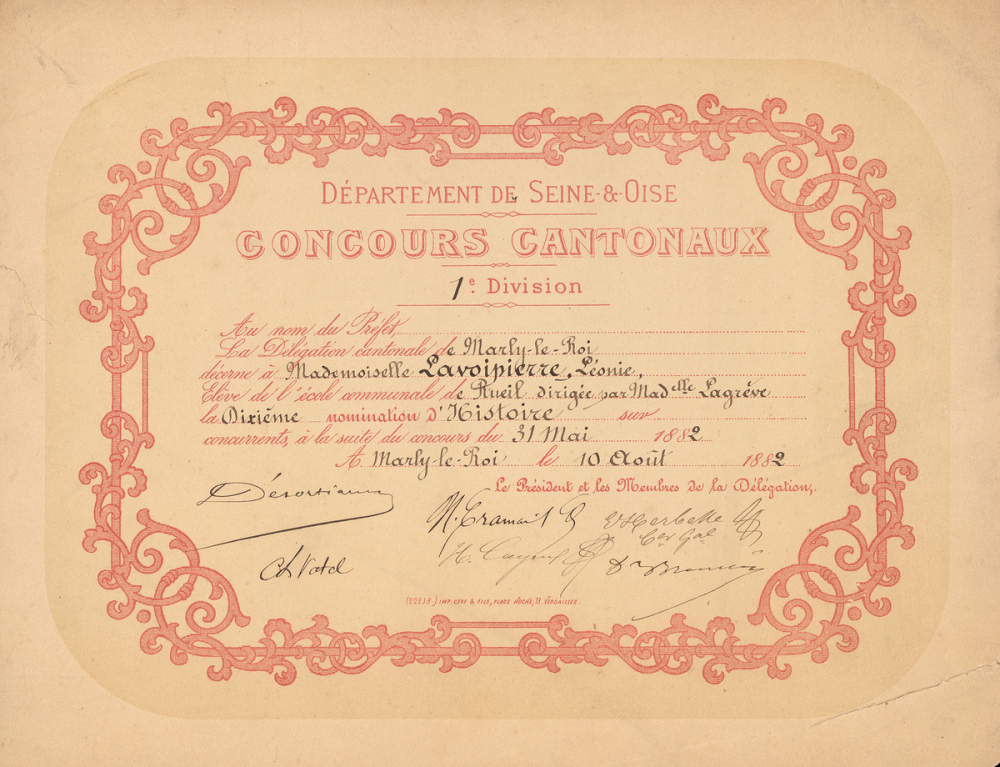 DÉPARTEMENT DE SEINE-&-OISE
CONCOURS CANTONAUX
1e. Division
Au nom du Préfet,
La Délégation cantonale de Marly-le-Roi
décerne à Mademoiselle Lavoipierre, Léonie,
Élève de l'école communale de Rueil dirigée par Madelle Lagrève
la Dixième nomination d'Histoire sur
concurrents, à la suite du concours du 31 Mai 1882
A Marly-le-Roi le 10 Août 1882
Le Président et les Membres de la Délégation,
Ch Vatel
IMP. CERF & FILS, PLACE HOCHE, VERSAILLES.